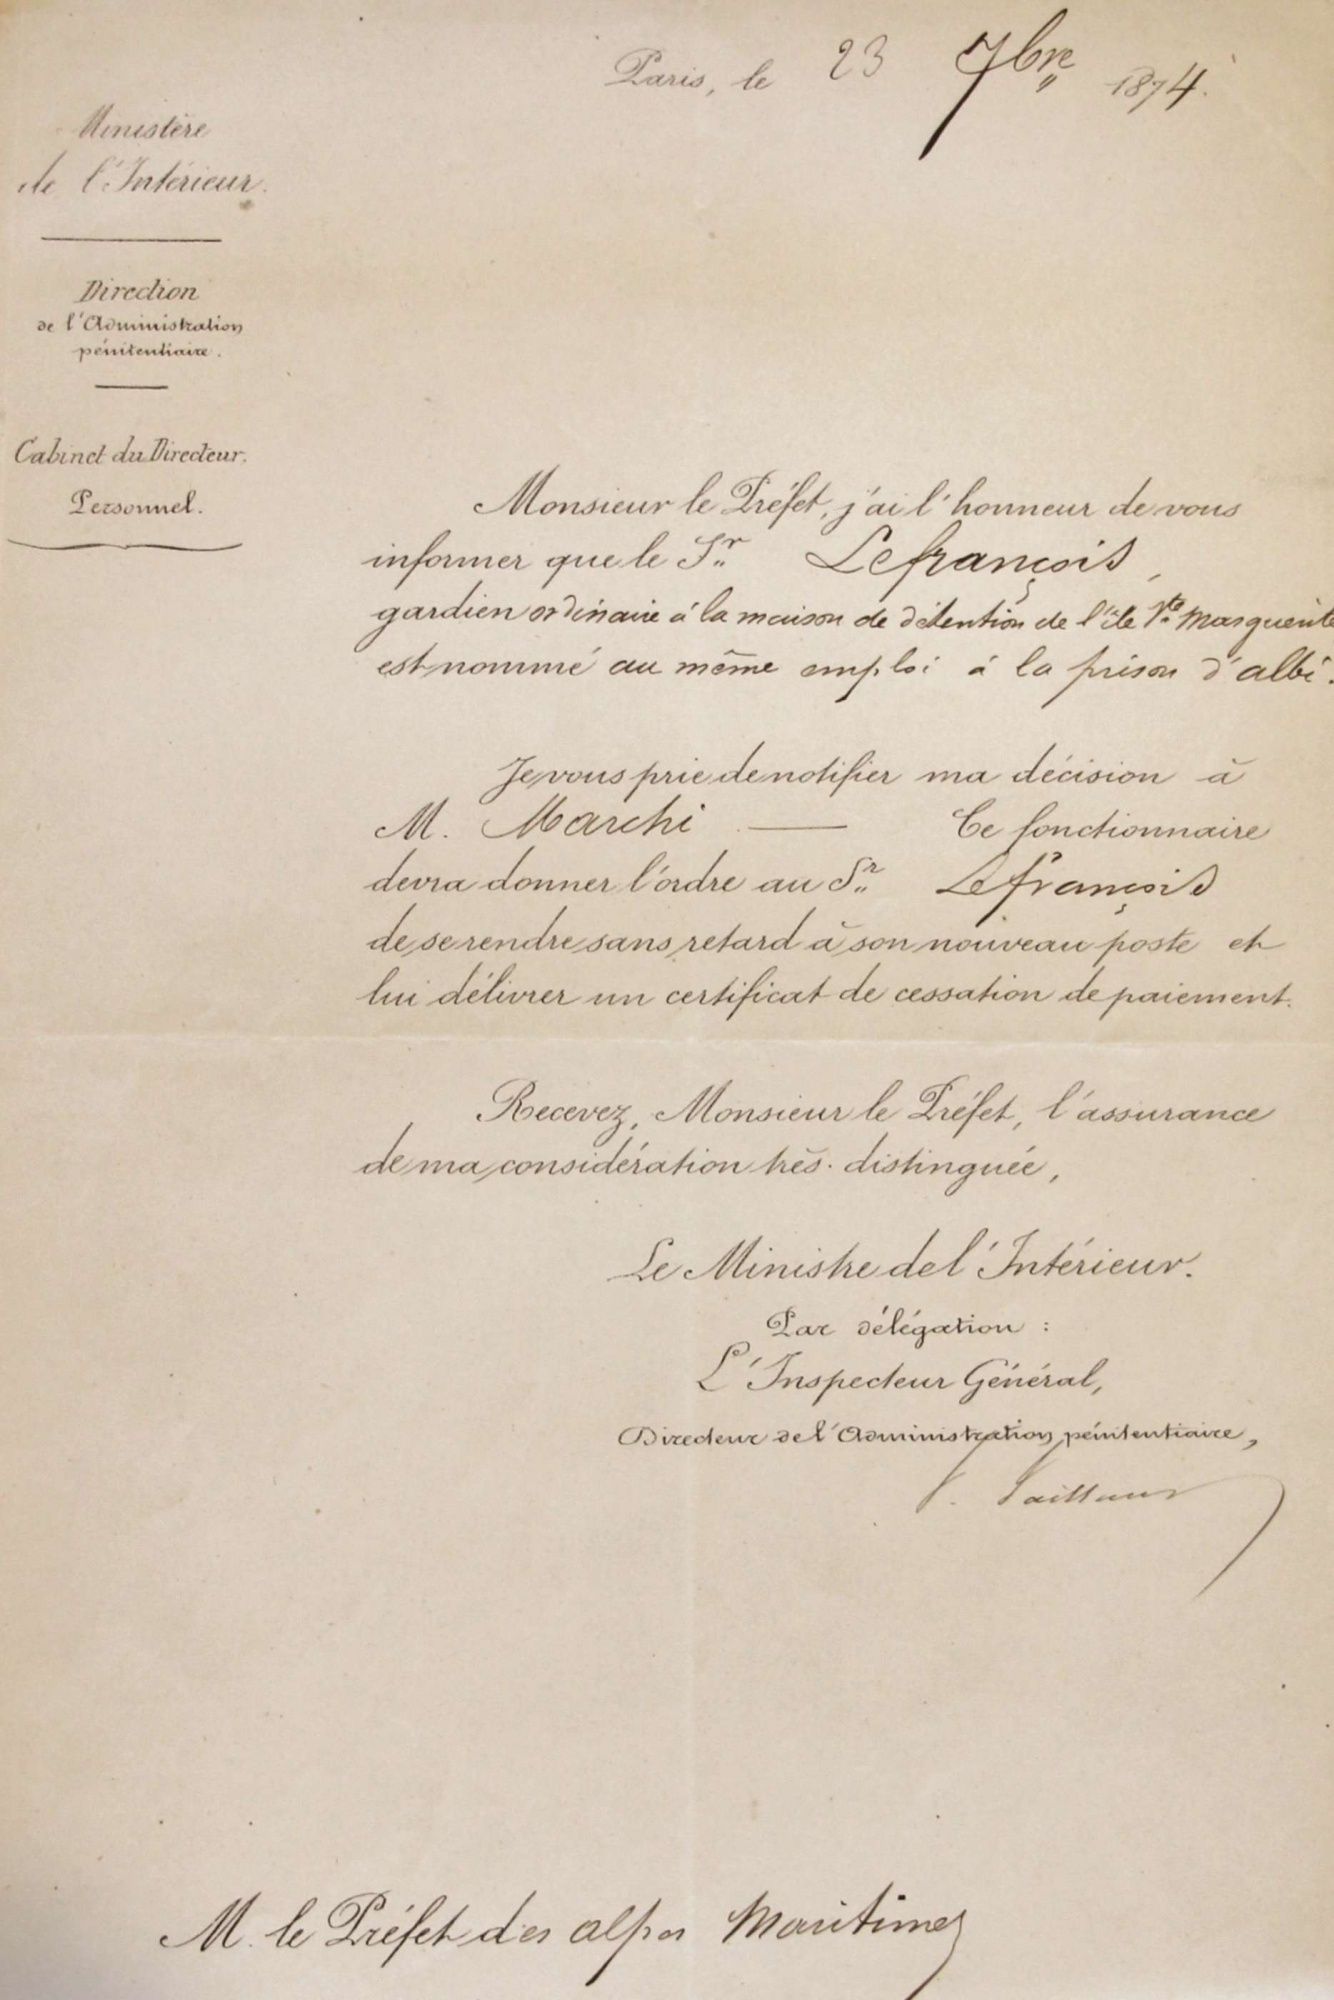 Paris, le 23 7bre 1874.
Ministère
de l'Intérieur.
Direction
de l'Administration
pénitentiaire.
Cabinet du Directeur.
Personnel.
Monsieur le Préfet, j'ai l'honneur de vous
informer que le Sr Lefrançois,
gardien ordinaire à la maison de détention de l'île Ste Marguerite
est nommé au même emploi à la prison d'albi.
Je vous prie de notifier ma décision à
M. Marchi — Ce fonctionnaire
devra donner l'ordre au Sr Lefrançois
de se rendre sans retard à son nouveau poste et
lui délivrer un certificat de cessation de paiement.
Recevez, Monsieur le Préfet, l'assurance
de ma considération très-distinguée,
Le Ministre de l'Intérieur.
Par délégation :
L'Inspecteur Général,
Directeur de l'Administration pénitentiaire,
M. le Préfet des alpes Maritimes